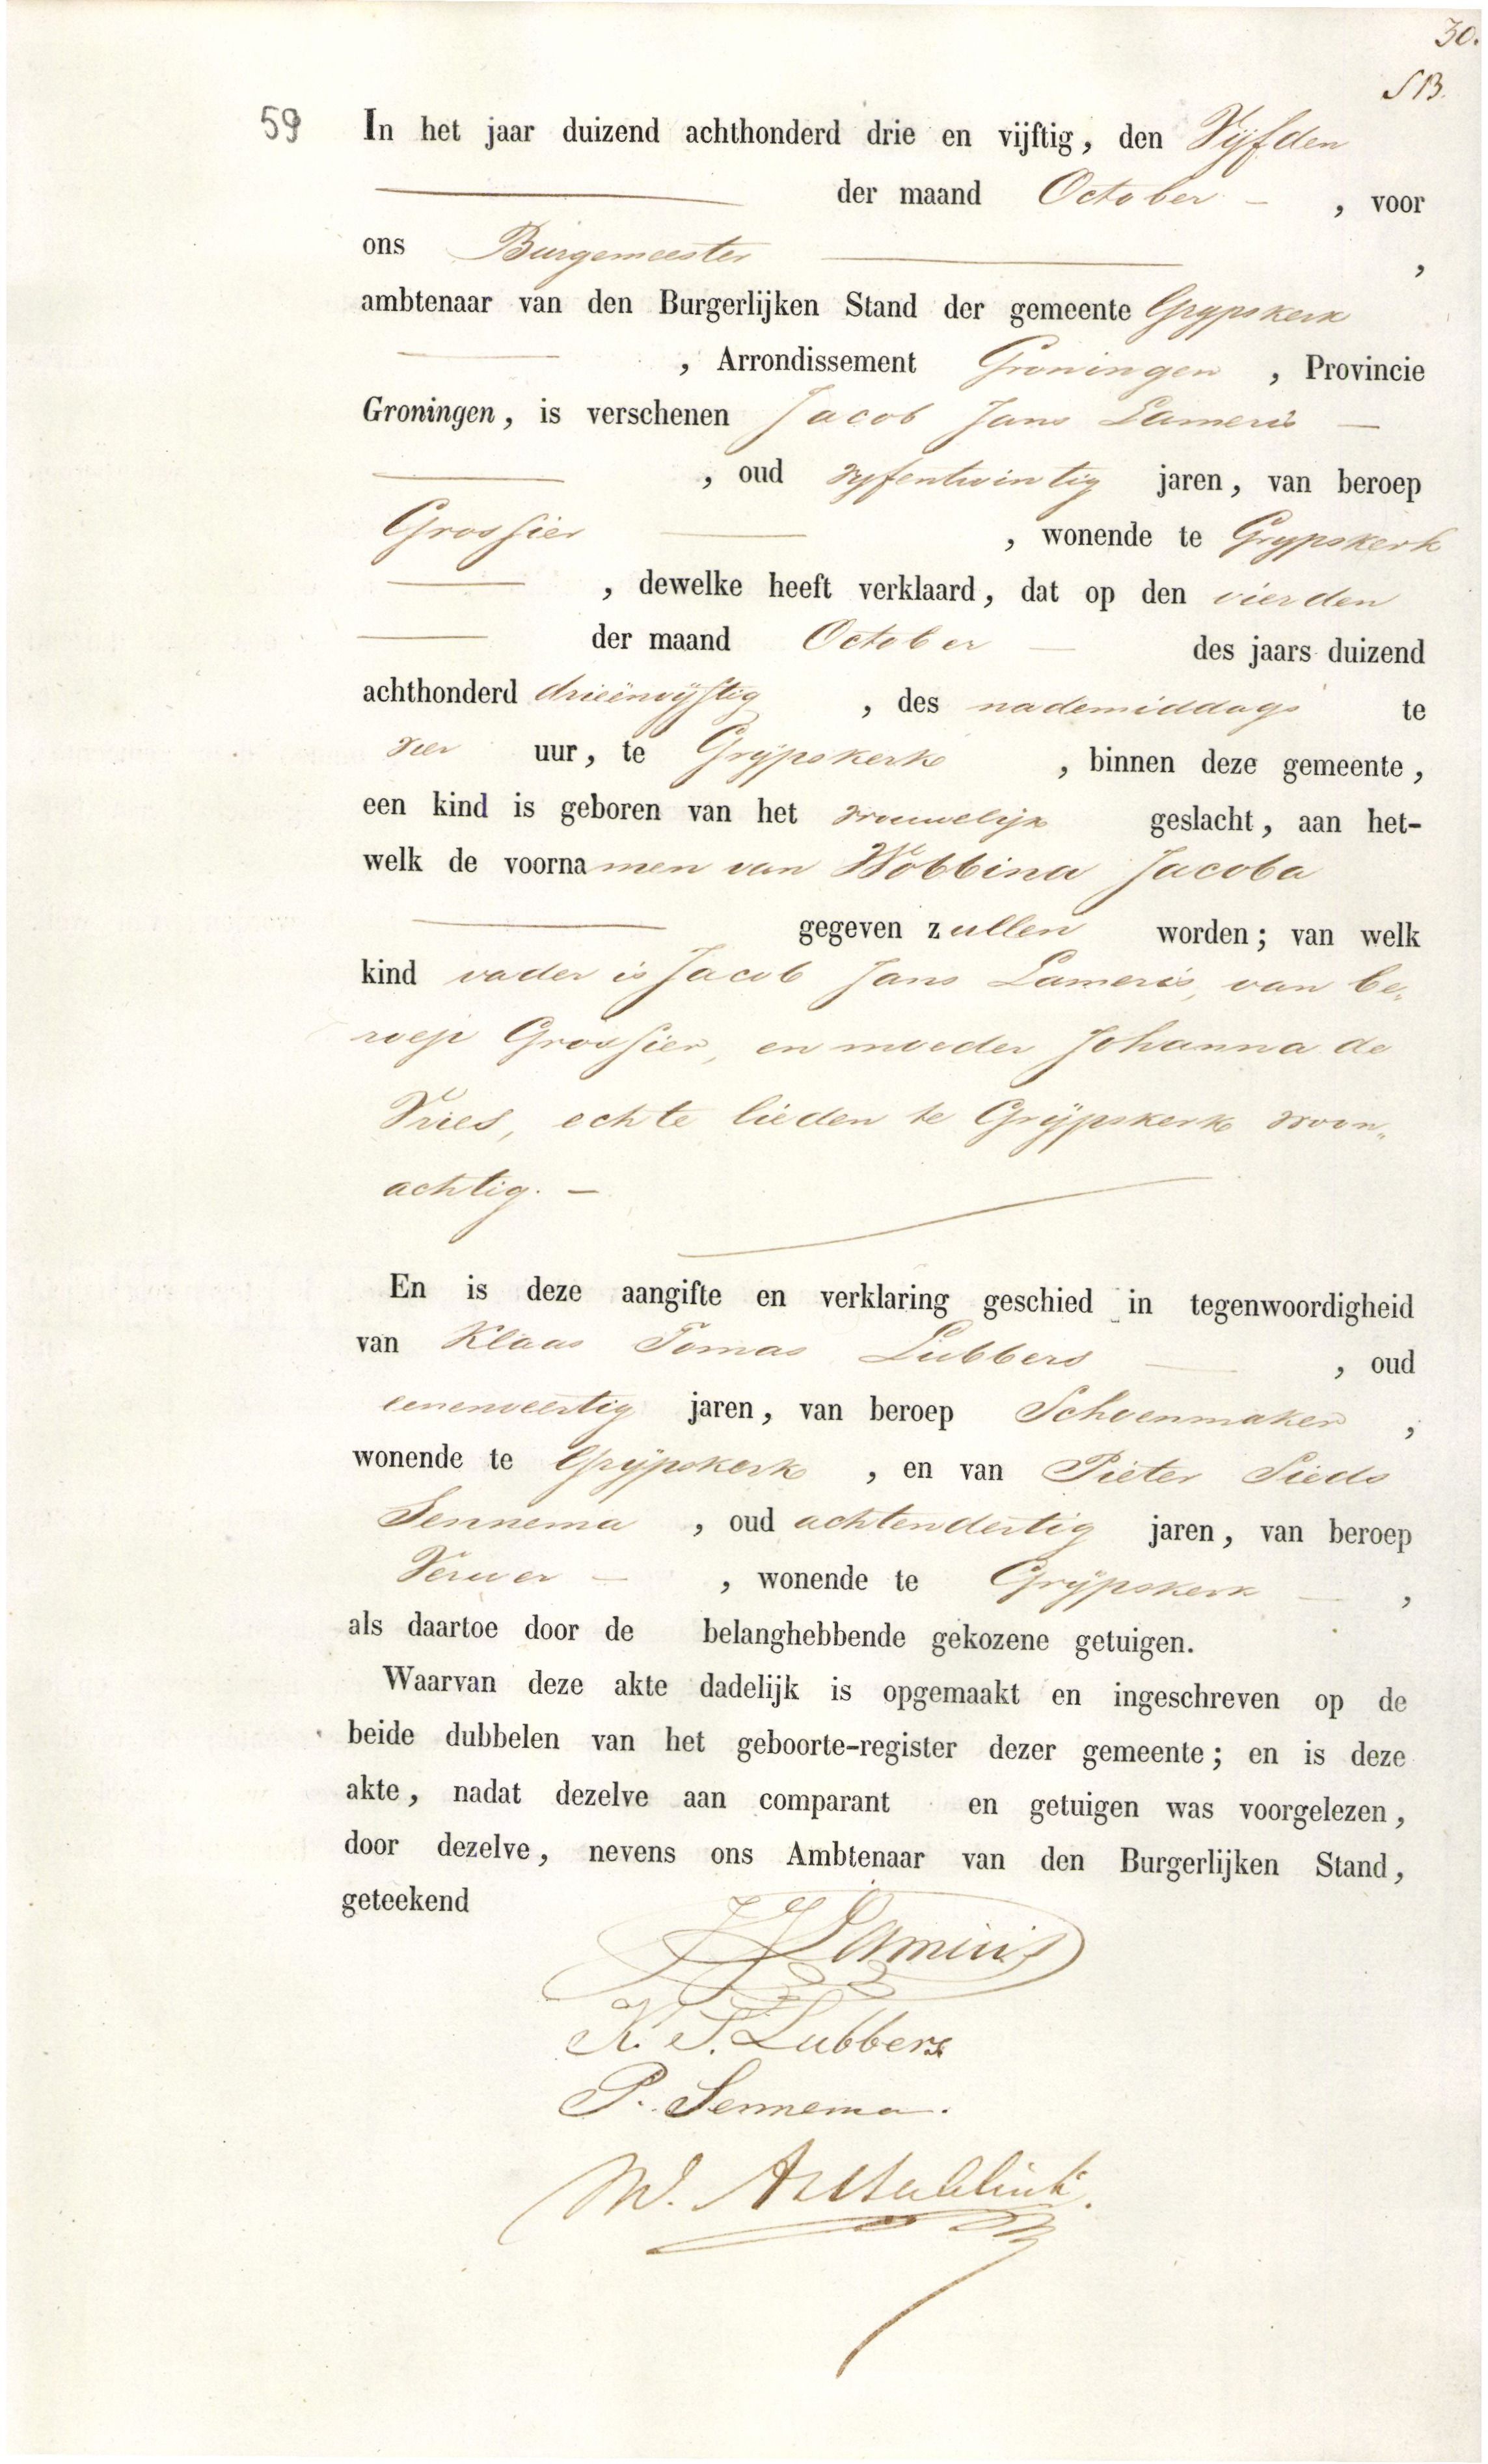 30.
SB.
59 In het jaar duizend achthonderd drie en vijftig, den Vijfden
der maand October, voor
ons Burgemeester,
ambtenaar van den Burgerlijken Stand der gemeente Grypskerk
, Arrondissement Groningen, Provincie
Groningen, is verschenen Jacob Jans Lameris
, oud vyfentwintig jaren, van beroep
Grossier, wonende te Grypskerk
, dewelke heeft verklaard, dat op den vierden
der maand October des jaars duizend
achthonderd drieënvijftig, des nademiddags te
vier uur, te Grijpskerk, binnen deze gemeente,
een kind is geboren van het vrouwelijk geslacht, aan het-
welk de voornamen van Wobbina Jacoba
gegeven zullen worden; van welk
kind vader is Jacob Jans Lameris, van be„
roep Grossier, en moeder Johanna de
Vries, echte lieden te Grijpskerk woon„
achtig. —
En is deze aangifte en verklaring geschied in tegenwoordigheid
van Klaas Tomas Lubbers, oud
eenenveertig jaren, van beroep Schoenmaker,
wonende te Grijpskerk, en van Pieter Sieds
Sennema, oud achtendertig jaren, van beroep
Verwer —, wonende te Grijpskerk,
als daartoe door de belanghebbende gekozene getuigen.
Waarvan deze akte dadelijk is opgemaakt en ingeschreven op de
beide dubbelen van het geboorte-register dezer gemeente; en is deze
akte, nadat dezelve aan comparant en getuigen was voorgelezen,
door dezelve, nevens ons Ambtenaar van den Burgerlijken Stand,
geteekend
JJLameris
K. T. Lubbers
P. Sennema.
W.